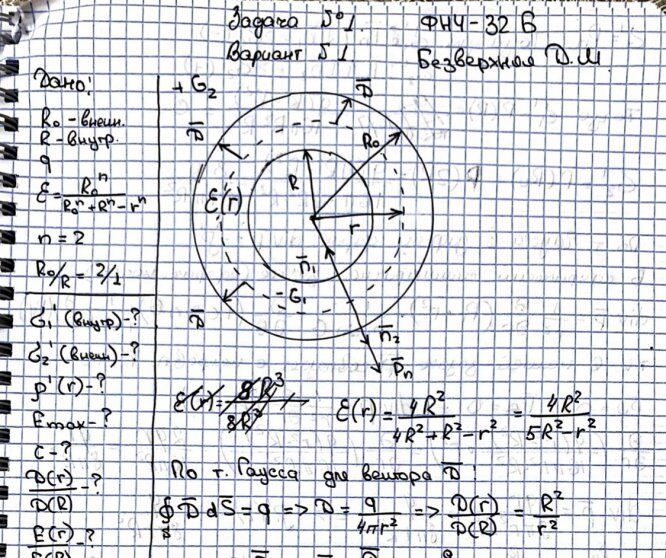 Задача №1. ФНЧ-32 Б
Вариант №1 Безверхная Д.М.
Дано:
R₀ - внешн.
R - внутр.
q
ε = R₀ⁿ / (R₀ⁿ + Rⁿ - rⁿ)
n = 2
R₀/R = 2/1
σ₁' (внутр) - ?
σ₂' (внешн) - ?
ρ'(r) - ?
Emax - ?
C - ?
D(r)/D(R) - ?
E(r) - ?
+ G₂
D̅
D̅
R₀
R
ε(r)
r
n̅₁
- G₁
D̅
n̅₂
P̅n
ε(r) = 4R² / (4R² + R² - r²) = 4R² / (5R² - r²)
По т. Гаусса для вектора D̅:
∮ D̅ dS̅ = q => D = q / 4πr² => D(r)/D(R) = R²/r²